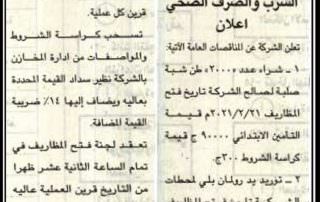 الشرب والصرف الصحي
اعلان
تعلن الشركة عن المناقصات العامة الآتية:
١ - شراء عدد «٢٠٠٠» طن شبة
صلبة لصالح الشركة تاريخ فتح
المظاريف ٢٠٢١/٢/٢١م قيمة
التأمين الابتدائي ٩٠٠٠٠ ج قيمة
كراسة الشروط ٣٠٠ج.
٢ - توريد يد رولمان بلي لمحطات
قرين كل عملية.
تسحب كراسة الشروط
والمواصفات من ادارة المخازن
بالشركة نظير سداد القيمة المحددة
بعاليه ويضاف إليها ١٤٪ ضريبة
القيمة المضافة.
تعقد لجنة فتح المظاريف في
تمام الساعة الثانية عشر ظهرا
من التاريخ قرين العملية عاليه